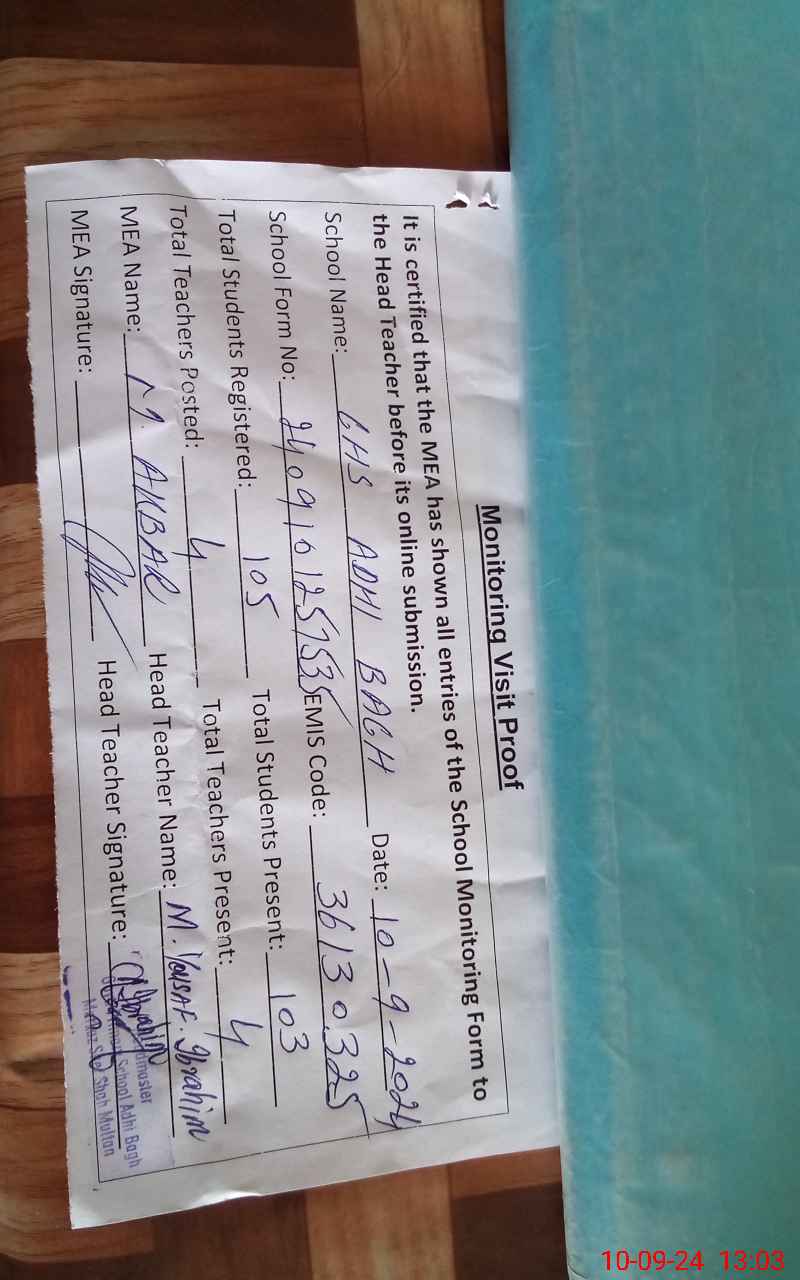 Monitoring Visit Proof
It is certified that the MEA has shown all entries of the School Monitoring Form to
the Head Teacher before its online submission.
School Name: GHS ADHI BAGH Date: 10-9-2024
School Form No: EMIS Code: 36130325
Total Students Registered: 105 Total Students Present: 103
Total Teachers Posted: 4 Total Teachers Present: 4
MEA Name: M. AKBAR Head Teacher Name: M. Yousaf. Ibrahim
MEA Signature: Head Teacher Signature: Ibrahim
School Adhi Bagh
Shah Multan
10-09-24 13:03